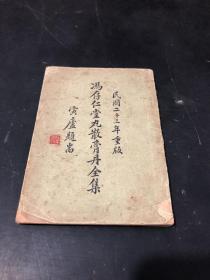 民國二十三年重版
馮存仁堂丸散膏丹全集